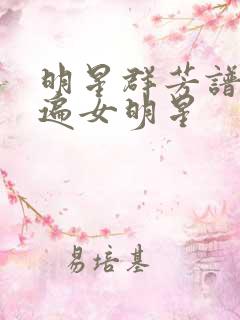 明星群芳譜
遍女明星
易培基